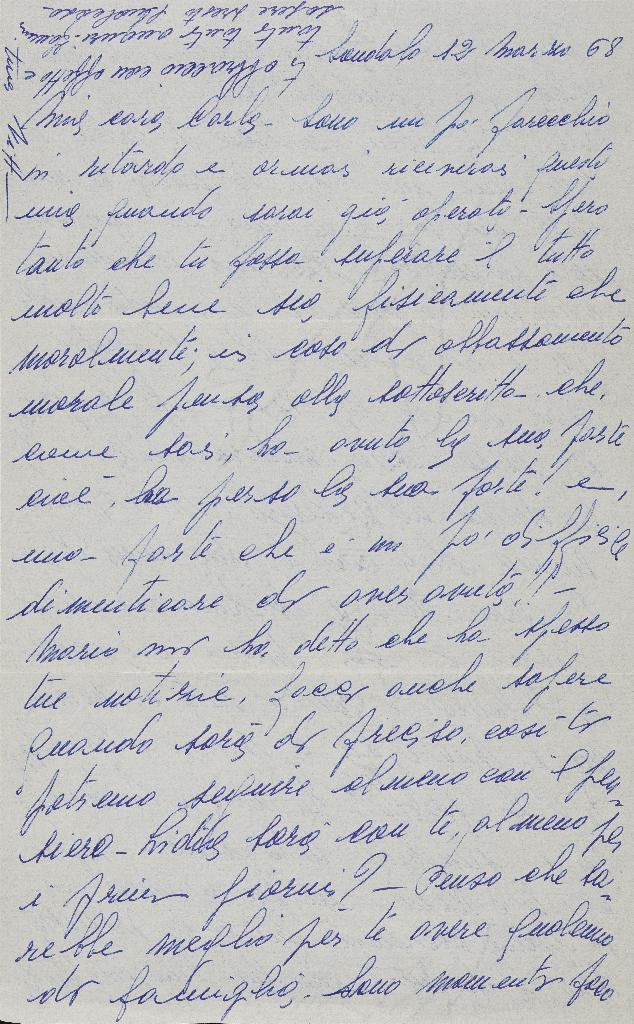 Sondalo 12 marzo 68
Mia cara Carla - Sono un po' parecchio
in ritardo e ormai riceverai questa
mia quando sarai già operata - Spero
tanto che tu possa superare il tutto
molto bene sia fisicamente che
moralmente; in caso di abbassamento
morale pensa alla sottoscritta che,
come sai, ha avuto la sua parte
cioè, ha perso la sua parte! e,
una parte che è un po' difficile
dimenticare di aver avuta!! -
Mario mi ha detto che ha spesso
tue notizie, facci anche sapere
quando sarà di preciso, così ti
potremo seguire almeno con il pen-
siero - sarà con te, almeno per
i primi giorni? - Penso che sa-
rebbe meglio per te avere qualcuno
di famiglia. Sono momenti poco
ti abbraccio con affetto e
tanti tanti auguri
sapere presto
tua